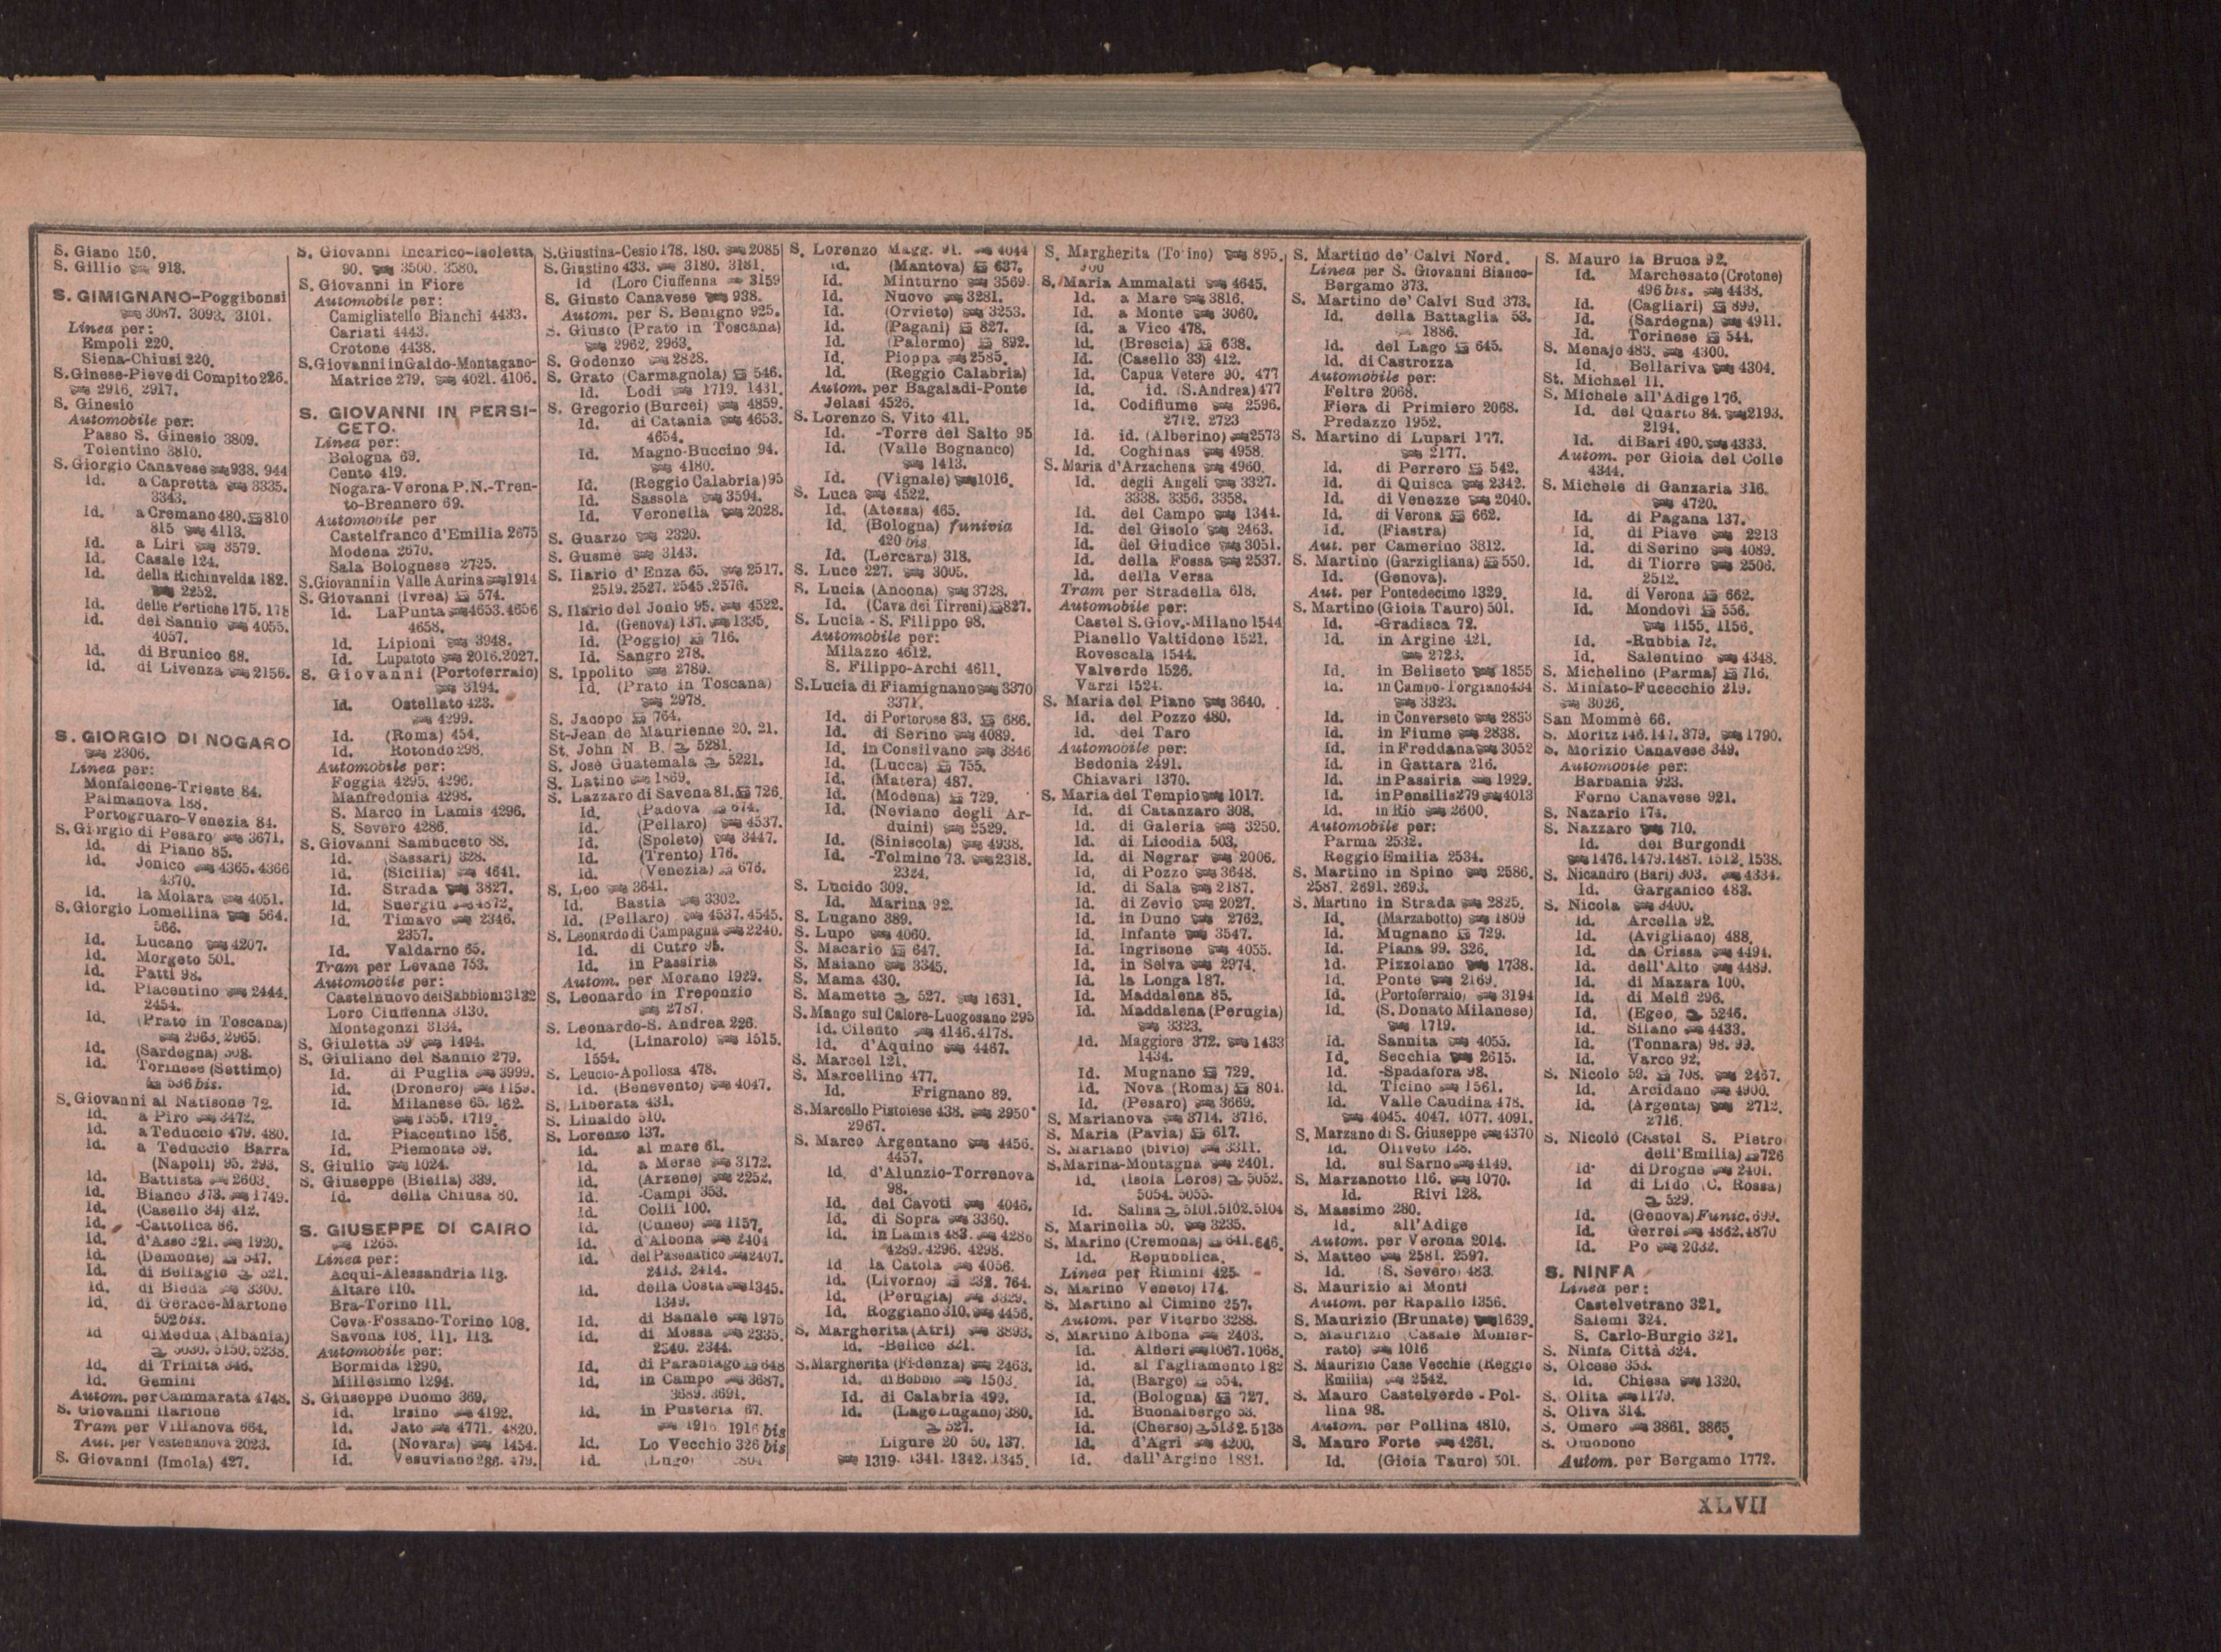 S. Giano 150.
S. Gillio 918.
S. GIMIGNANO-Poggibonsi
3087. 3093. 3101.
Linea per:
Empoli 220.
Siena-Chiusi 220.
S.Ginese-Pieve di Compito 226.
2916. 2917.
S. Ginesio
Automobile per:
Passo S. Ginesio 3809.
Tolentino 3810.
S. Giorgio Canavese 938. 944
Id. a Capretta 3335.
3343.
Id. a Cremano 480. 810
815 4113.
Id. a Liri 3579.
Id. Casale 124.
Id. della Richinvelda 182.
2252.
Id. delle Pertiche 175. 178
Id. del Sannio 4055.
4057.
Id. di Brunico 68.
Id. di Livenza 2156.
S. GIORGIO DI NOGARO
2306.
Linea per:
Monfalcone-Trieste 84.
Palmanova 188.
Portogruaro-Venezia 84.
S. Giorgio di Pesaro 3671.
Id. di Piano 85.
Id. Jonico 4365. 4366
4370.
Id. la Molara 4051.
S.Giorgio Lomellina 564.
566.
Id. Lucano 4207.
Id. Morgeto 501.
Id. Patti 98.
Id. Piacentino 2444.
2454.
Id. (Prato in Toscana)
2963. 2965.
Id. (Sardegna) 508.
Id. Torinese (Settimo)
536 bis.
S. Giovanni al Natisone 72.
Id. a Piro 3472.
Id. a Teduccio 479. 480.
Id. a Teduccio Barra
(Napoli) 95. 293.
Id. Battista 2603.
Id. Bianco 373. 1749.
Id. (Casello 34) 412.
Id. -Cattolica 86.
Id. d'Asso 221. 1920.
Id. (Demonte) 547.
Id. di Bellagio 521.
Id. di Bieda 3300.
Id. di Gerace-Martone
502 bis.
Id di Medua (Albania)
5030. 5150. 5238.
Id. di Trinita 346.
Id. Gemini
Autom. per Cammarata 4748.
S. Giovanni Ilarione
Tram per Villanova 664.
Aut. per Vestenanova 2023.
S. Giovanni (Imola) 427.
S. Giovanni Incarico-Isoletta
90. 3500. 3580.
S. Giovanni in Fiore
Automobile per:
Camigliatello Bianchi 4433.
Cariati 4443.
Crotone 4438.
S.Giovanni in Galdo-Montagano-
Matrice 279. 4021. 4106.
S. GIOVANNI IN PERSI-
CETO.
Linea per:
Bologna 69.
Cento 419.
Nogara-Verona P.N.-Tren-
to-Brennero 69.
Automobile per
Castelfranco d'Emilia 2675
Modena 2670.
Sala Bolognese 2725.
S.Giovanni in Valle Aurina 1914
S. Giovanni (Ivrea) 574.
Id. La Punta 4653. 4656
4658.
Id. Lipioni 3948.
Id. Lupatoto 2016. 2027.
S. Giovanni (Portoferraio)
3194.
Id. Ostellato 423.
4299.
Id. (Roma) 454.
Id. Rotondo 298.
Automobile per:
Foggia 4295. 4296.
Manfredonia 4298.
S. Marco in Lamis 4296.
S. Severo 4286.
S. Giovanni Sambuceto 88.
Id. (Sassari) 328.
Id. (Sicilia) 4641.
Id. Strada 3827.
Id. Suergiu 4872.
Id. Timavo 2346.
2357.
Id. Valdarno 65.
Tram per Levane 753.
Automobile per:
Castelnuovo dei Sabbioni 3132
Loro Ciuffenna 3130.
Montegonzi 3134.
S. Giuletta 59 1494.
S. Giuliano del Sannio 279.
Id. di Puglia 3999.
Id. (Dronero) 1159.
Id. Milanese 65. 162.
1555. 1719.
Id. Piacentino 156.
Id. Piemonte 59.
S. Giulio 1024.
S. Giuseppe (Biella) 339.
Id. della Chiusa 80.
S. GIUSEPPE DI CAIRO
1265.
Linea per:
Acqui-Alessandria 113.
Altare 110.
Bra-Torino 111.
Ceva-Fossano-Torino 108.
Savona 108. 111. 113.
Automobile per:
Bormida 1290.
Millesimo 1294.
S. Giuseppe Duomo 369.
Id. Irsino 4192.
Id. Jato 4771. 4820.
Id. (Novara) 1454.
Id. Vesuviano 286. 479.
S.Giustina-Cesio 178. 180. 2085
S.Giustino 433. 3180. 3181.
Id (Loro Ciuffenna 3159
S. Giusto Canavese 938.
Autom. per S. Benigno 925.
S. Giusto (Prato in Toscana)
2962. 2963.
S. Godenzo 2828.
S. Grato (Carmagnola) 546.
Id. Lodi 1719. 1431.
S. Gregorio (Burcei) 4859.
Id. di Catania 4653.
4654.
Id. Magno-Buccino 94.
4180.
Id. (Reggio Calabria) 95
Id. Sassola 3594.
Id. Veronella 2028.
S. Guarzo 2320.
S. Gusmè 3143.
S. Ilario d' Enza 65. 2517.
2519. 2527. 2545. 2576.
S. Ilario del Jonio 95. 4522.
Id. (Genova) 137. 1335.
Id. (Poggio) 716.
Id. Sangro 278.
S. Ippolito 2789.
Id. (Prato in Toscana)
2978.
S. Jacopo 764.
St-Jean de Maurienne 20. 21.
St. John N B. 5281.
S. José Guatemala 5221.
S. Latino 1869.
S. Lazzaro di Savena 81. 726
Id. (Padova 674.
Id. (Pellaro) 4537.
Id. (Spoleto) 3447.
Id. (Trento) 176.
Id. (Venezia) 676.
S. Leo 3641.
Id. Bastia 3302.
Id. (Pellaro) 4537. 4545.
S. Leonardo di Campagna 2240.
Id. di Cutro 95.
Id. in Passiria
Autom. per Merano 1929.
S. Leonardo in Treponzio
2787.
S. Leonardo-S. Andrea 226.
Id. (Linarolo) 1515.
1554.
S. Leucio-Apollosa 478.
Id. (Benevento) 4047.
S. Liberata 431.
S. Linaldo 510.
S. Lorenzo 137.
Id. al mare 61.
Id. a Merse 3172.
Id. (Arzene) 2252.
Id. -Campi 353.
Id. Colli 100.
Id. (Cuneo) 1157.
Id. d'Albona 2404
Id. del Pasenatico 2407.
2413. 2414.
Id. della Costa 1345.
1349.
Id. di Banale 1975
Id. di Mossa 2335.
2340. 2344.
Id. di Parabiago 648
Id. in Campo 3687.
3689. 3691.
Id. in Pusteria 67.
1915 1916 bis
Id. Lo Vecchio 326 bis
Id. (Lugo)
S. Lorenzo Magg. 91. 4044
Id. (Mantova) 637.
Id. Minturno 3569.
Id. Nuovo 3281.
Id. (Orvieto) 3253.
Id. (Pagani) 827.
Id. (Palermo) 892.
Id. Pioppa 2585.
Id. (Reggio Calabria)
Autom. per Bagaladi-Ponte
Jelasi 4526.
S. Lorenzo S. Vito 411.
Id. -Torre del Salto 95
Id. (Valle Bognanco)
1413.
Id. (Vignale) 1016.
S. Luca 4522.
Id. (Atessa) 465.
Id. (Bologna) funivia
420 bis.
Id. (Lercara) 318.
S. Luce 227. 3005.
S. Lucia (Ancona) 3728.
Id. (Cava dei Tirreni) 827.
S. Lucia - S. Filippo 98.
Automobile per:
Milazzo 4612.
S. Filippo-Archi 4611.
S.Lucia di Fiamignano 3370
3371.
Id. di Portorose 83. 686.
Id. di Serino 4089.
Id. in Consilvano 3846
Id. (Lucca) 755.
Id. (Matera) 487.
Id. (Modena) 729.
Id. (Neviano degli Ar-
duini) 2529.
Id. (Siniscola) 4938.
Id. -Tolmino 73. 2318.
2324.
S. Lucido 309.
Id. Marina 92.
S. Lugano 389.
S. Lupo 4060.
S. Macario 647.
S. Maiano 3345.
S. Mama 430.
S. Mamette 527. 1631.
S. Mango sul Calore-Luogosano 295
Id. Cilento 4146. 4178.
Id. d'Aquino 4467.
S. Marcel 121.
S. Marcellino 477.
Id. Frignano 89.
S.Marcello Pistoiese 438. 2950
2967.
S. Marco Argentano 4456.
4457.
Id. d'Alunzio-Torrenova
98.
Id. dei Cavoti 4046.
Id. di Sopra 3360.
Id. in Lamis 483. 4286
4289. 4296. 4298.
Id la Catola 4056.
Id. (Livorno) 232. 764.
Id. (Perugia) 3329.
Id. Roggiano 310. 4456.
S. Margherita (Atri) 3893.
Id. -Belice 321.
S.Margherita (Fidenza) 2463.
Id. di Bobbio 1503.
Id. di Calabria 499.
Id. (Lago Lugano) 380.
527.
Ligure 20 50. 137.
1319. 1341. 1342. 1345.
S. Margherita (Torino) 895.
900
S. Maria Ammalati 4645.
Id. a Mare 3816.
Id. a Monte 3060.
Id. a Vico 478.
Id. (Brescia) 638.
Id. (Casello 33) 412.
Id. Capua Vetere 90. 477
Id. id. (S.Andrea) 477
Id. Codifiume 2596.
2712. 2723
Id. id. (Alberino) 2573
Id. Coghinas 4958.
S. Maria d'Arzachena 4960.
Id. degli Angeli 3327.
3338. 3356. 3358.
Id. del Campo 1344.
Id. del Gisolo 2463.
Id. del Giudice 3051.
Id. della Fossa 2537.
Id. della Versa
Tram per Stradella 618.
Automobile per:
Castel S.Giov.-Milano 1544
Pianello Valtidone 1521.
Rovescala 1544.
Valverde 1526.
Varzi 1524.
S. Maria del Piano 3640.
Id. del Pozzo 480.
Id. del Taro
Automobile per:
Bedonia 2491.
Chiavari 1370.
S. Maria del Tempio 1017.
Id. di Catanzaro 308.
Id. di Galeria 3250.
Id. di Licodia 503.
Id. di Negrar 2006.
Id. di Pozzo 3648.
Id. di Sala 2187.
Id. di Zevio 2027.
Id. in Duno 2762.
Id. Infante 3547.
Id. Ingrisone 4055.
Id. in Selva 2974.
Id. la Longa 187.
Id. Maddalena 85.
Id. Maddalena (Perugia)
3323.
Id. Maggiore 372. 1433
1434.
Id. Mugnano 729.
Id. Nova (Roma) 804.
Id. (Pesaro) 3669.
S. Marianova 3714. 3716.
S. Maria (Pavia) 617.
S. Mariano (bivio) 3311.
S. Marina-Montagna 2401.
Id. (Isola Leros) 5052.
5054. 5055.
Id. Salina 5101. 5102. 5104
S. Marinella 50. 3235.
S. Marino (Cremona) 641. 646.
Id. Repubblica.
Linea per Rimini 425.
S. Marino Veneto) 174.
S. Martino al Cimino 257.
Autom. per Viterbo 3288.
S. Martino Albona 2403.
Id. Alfieri 1067. 1068.
Id. al Tagliamento 182
Id. (Barge) 554.
Id. (Bologna) 727.
Id. Buonalbergo 53.
Id. (Cherso) 5132. 5138
Id. d'Agri 4200.
Id. dall'Argine 1881.
S. Martino de' Calvi Nord.
Linea per S. Giovanni Bianco-
Bergamo 373.
S. Martino de' Calvi Sud 373.
Id. della Battaglia 53.
1886.
Id. del Lago 645.
Id. di Castrozza
Automobile per:
Feltre 2068.
Fiera di Primiero 2068.
Predazzo 1952.
S. Martino di Lupari 177.
2177.
Id. di Perrero 542.
Id. di Quisca 2342.
Id. di Venezze 2040.
Id. di Verona 662.
Id. (Fiastra)
Aut. per Camerino 3812.
S. Martino (Garzigliana) 550.
Id. (Genova).
Aut. per Pontedecimo 1329.
S. Martino (Gioia Tauro) 501.
Id. -Gradisca 72.
Id. in Argine 421.
2723.
Id. in Beliseto 1855
Id. in Campo-Torgiano 434
3323.
Id. in Converseto 2853
Id. in Fiume 2838.
Id. in Freddana 3052
Id. in Gattara 216.
Id. in Passiria 1929.
Id. in Pensilis 279 4013
Id. in Rio 2600.
Automobile per:
Parma 2532.
Reggio Emilia 2534.
S. Martino in Spino 2586.
2587. 2691. 2693.
S. Martino in Strada 2825.
Id. (Marzabotto) 1809
Id. Mugnano 729.
Id. Piana 99. 326.
Id. Pizzolano 1738.
Id. Ponte 2169.
Id. (Portoferraio) 3194
Id. (S. Donato Milanese)
1719.
Id. Sannita 4055.
Id. Secchia 2615.
Id. -Spadafora 98.
Id. Ticino 1561.
Id. Valle Caudina 478.
4045. 4047. 4077. 4091.
S. Marzano di S. Giuseppe 4370
Id. Oliveto 128.
Id. sul Sarno 4149.
S. Marzanotto 116. 1070.
Id. Rivi 128.
S. Massimo 280.
Id. all'Adige
Autom. per Verona 2014.
S. Matteo 2581. 2597.
Id. (S. Severo) 483.
S. Maurizio ai Monti
Autom. per Rapallo 1356.
S. Maurizio (Brunate) 1639.
S. Maurizio (Casale Monfer-
rato) 1016
S. Maurizio Case Vecchie (Reggio
Emilia) 2542.
S. Mauro Castelverde - Pol-
lina 98.
Autom. per Pollina 4810.
S. Mauro Forte 4261.
Id. (Gioia Tauro) 501.
S. Mauro la Bruca 92.
Id. Marchesato (Crotone)
496 bis. 4438.
Id. (Cagliari) 899.
Id. (Sardegna) 4911.
Id. Torinese 544.
S. Menajo 483. 4300.
Id. Bellariva 4304.
St. Michael 11.
S. Michele all'Adige 176.
Id. del Quarto 84. 2193.
2194.
Id. di Bari 490. 4333.
Autom. per Gioia del Colle
4344.
S. Michele di Ganzaria 316.
4720.
Id. di Pagana 137.
Id. di Piave 2213
Id. di Serino 4089.
Id. di Tiorre 2506.
2512.
Id. di Verona 662.
Id. Mondovì 556.
1155. 1156.
Id. -Rubbia 72.
Id. Salentino 4348.
S. Michelino (Parma) 716.
S. Miniato-Fucecchio 219.
3026.
San Mommè 66.
S. Moritz 146. 147. 379. 1790.
S. Morizio Canavese 349.
Automobile per:
Barbania 923.
Forno Canavese 921.
S. Nazario 174.
S. Nazzaro 710.
Id. dei Burgondi
1476. 1479. 1487. 1512. 1538.
S. Nicandro (Bari) 303. 4334.
Id. Garganico 483.
S. Nicola 3400.
Id. Arcella 92.
Id. (Avigliano) 488.
Id. da Crissa 4494.
Id. dell'Alto 4489.
Id. di Mazara 100.
Id. di Melfi 296.
Id. (Egeo, 5246.
Id. Silano 4433.
Id. (Tonnara) 98. 99.
Id. Varco 92.
S. Nicolò 59. 708. 2467.
Id. Arcidano 4900.
Id. (Argenta) 2712.
2716.
S. Nicolò (Castel S. Pietro
dell'Emilia) 726
Id. di Drogne 2401.
Id di Lido (C. Rossa)
529.
Id. (Genova) Funic. 699.
Id. Gerrei 4862. 4870
Id. Po 2632.
S. NINFA
Linea per:
Castelvetrano 321.
Salemi 324.
S. Carlo-Burgio 321.
S. Ninfa Città 324.
S. Olcese 353.
Id. Chiesa 1320.
S. Olita 1179.
S. Oliva 314.
S. Omero 3861. 3865
S. Omobono
Autom. per Bergamo 1772.
XLVII